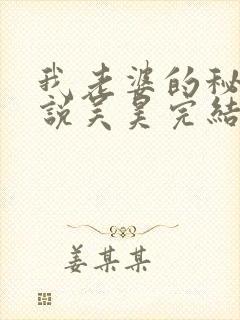 我老婆的秘
說吴昊完結
姜某某